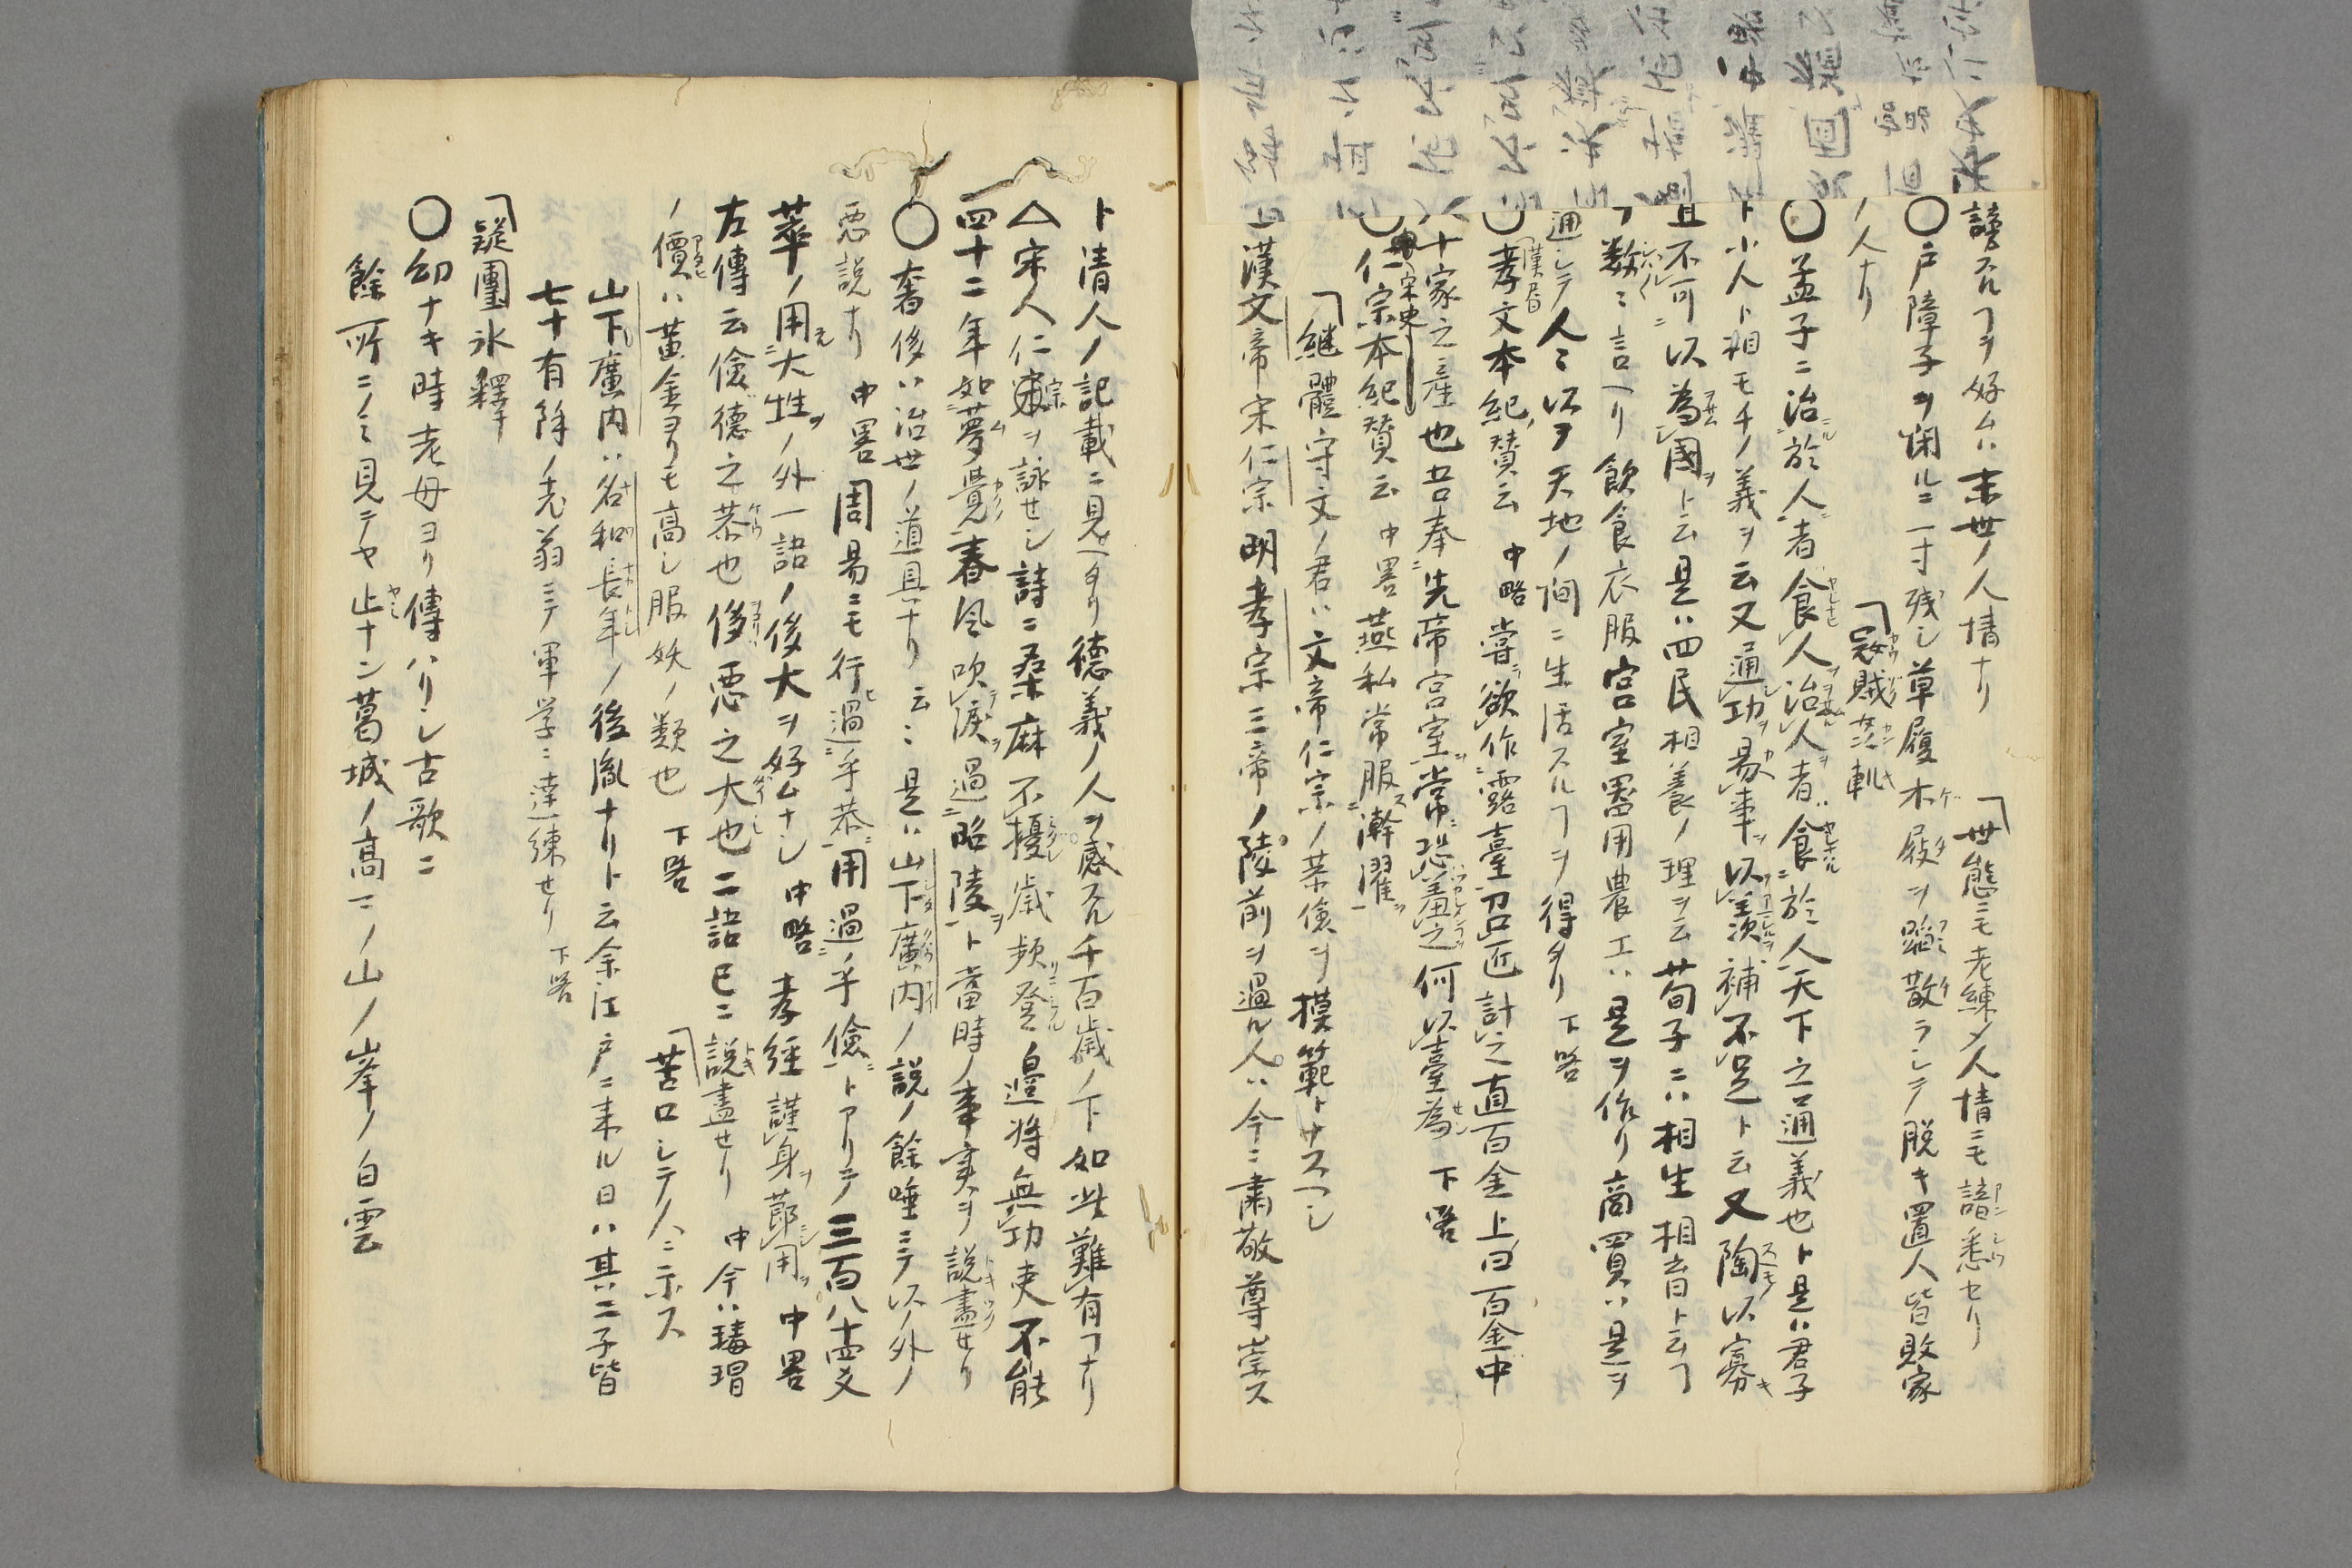 謗スルヿヲ好ムハ末世ノ人情ナリ 「世態ニモ老練メ人情ニモ諳悉セリ
〇戸障子ヲ閉ルニ一寸残シ草履木屐ヲ蹈散ラシテ脱キ置人皆敗家
ノ人ナリ 「寇賊姦軌
〇孟子ニ治於人者食人治人者食於人天下之通義也ト是ハ君子
ト小人ト相モチノ義ヲ云又通功易事以羨補不足ト云又陶以寡
且不可以為國ト云是ハ四民相養ノ理ヲ云荀子ニハ相生相育ト云フ
ヿ数ミ言ヘリ飲食衣服宮室噐用農工ハ是ヲ作リ商買ハ是ヲ
通シテ人ミ以ヲ天地ノ间ニ生活スルヿヲ得タリ 下略
〇漢書孝文本紀賛云 中略 嘗欲作露臺召匠計之直百金上曰百金中
人十家之産也吾奉先帝宮室常恐羞之何以臺為 下畧
〇宋史仁宗本紀賛云 中畧 燕私常服澣濯
「継體守文ノ君ハ文帝仁宗ノ恭儉ヲ摸範トナスヘシ
漢文帝宋仁宗明孝宗三帝ノ陵前ヲ過ル人ハ今ニ肅敬尊崇ス
ト清人ノ記載ニ見ヘタリ徳義ノ人ヲ感スル千百歳ノ下如此難有ヿナリ
△宋人仁宗ヲ詠セシ詩ニ桑麻不擾歳頻登邉将無功吏不能
四十二年如夢覺春風吹涙過昭陵ト當時ノ事実ヲ説盡セリ
〇奢侈ハ治世ノ道具ナリ云ミ是ハ山下廣内ノ説ノ餘唾ニテ以ノ外ノ
悪説ナリ 中畧 周易ニモ行過乎恭用過乎儉トアリテ三百八十四爻
萃ノ用大牲ノ外一語ノ侈大ヲ好ムナシ 中略 孝經謹身節用 中畧
左傳云儉德之恭也侈悪之大也二語已ニ説盡セリ 中 今ハ瑇瑁
ノ價ハ黄金ヨリモ高シ服妖ノ類也 下畧 「苦口シテ人ニ示ス
山下廣内ハ名和長年ノ後胤ナリト云余江戸ニ来ル日ハ其二子皆
七十有餘ノ老翁ニテ軍学ニ達練セリ 下畧
「疑團氷釋
〇幼ナキ時老母ヨリ傳ハリシ古歌ニ
餘所ニノミ見テヤ止ナン葛城ノ高マノ山ノ峯ノ白雲